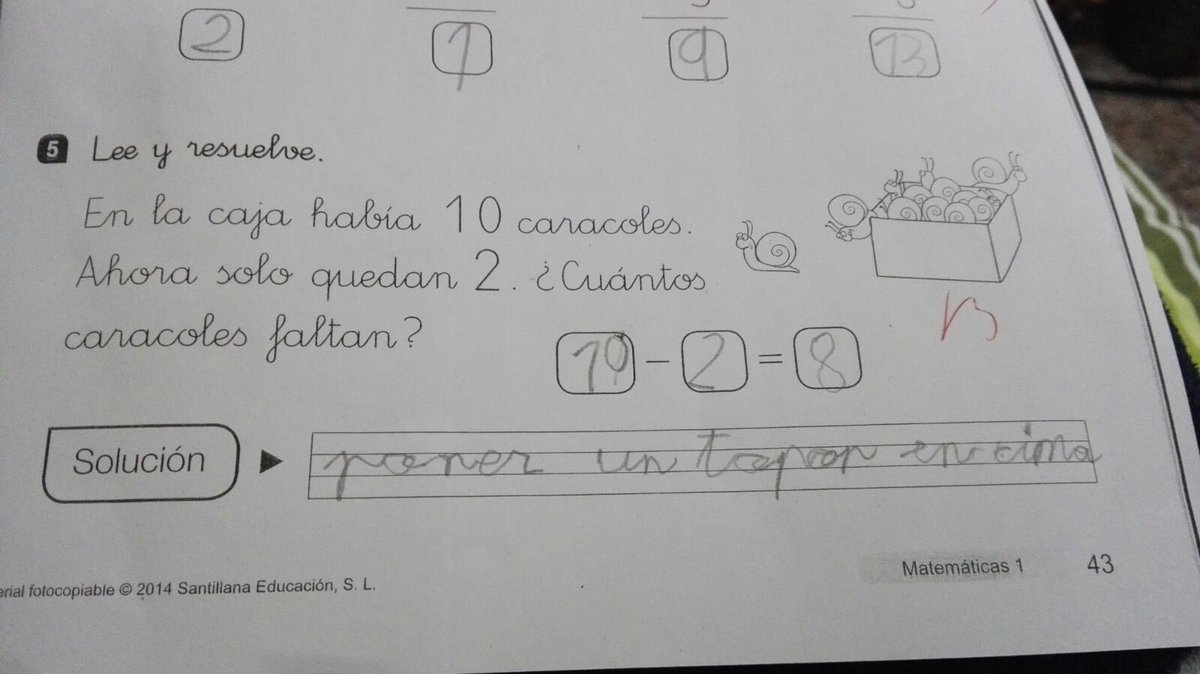 2 7 9 13
5 Lee y resuelve.
En la caja había 10 caracoles.
Ahora solo quedan 2. ¿Cuántos
caracoles faltan?
10 - 2 = 8
B
Solución ► poner un tapon encima
erial fotocopiable © 2014 Santillana Educación, S. L.
Matemáticas 1 43